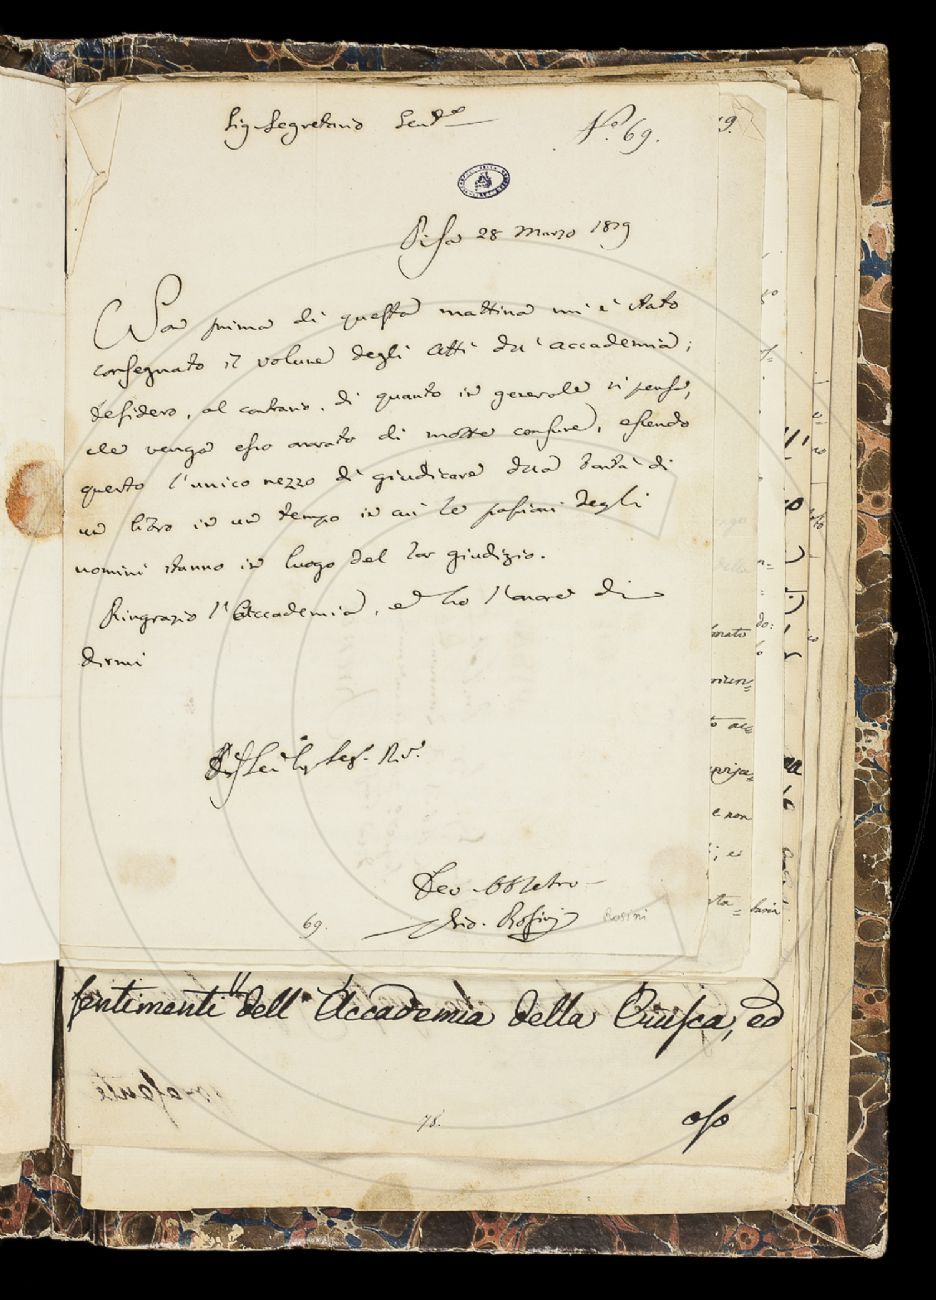 Sig. Segretario Gent.e
N.o 69.
Pisa 28 Marzo 1819
Non prima di questa mattina mi è stato
consegnato il volume degli Atti dell'Accademia;
desidero, al contrario di quanto in generale si pensa,
che venga esso onorato di molte censure, essendo
questo l'unico mezzo di giudicare della bontà di
un libro in un tempo in cui le passioni degli
uomini stanno in luogo del lor giudizio.
Ringrazio l'Accademia, ed ho l'onore di
dirmi
Dev. Obb. Servo
Gio. Rosini
Rosini
69.
sentimenti dell'Accademia della Crusca, ed
78.